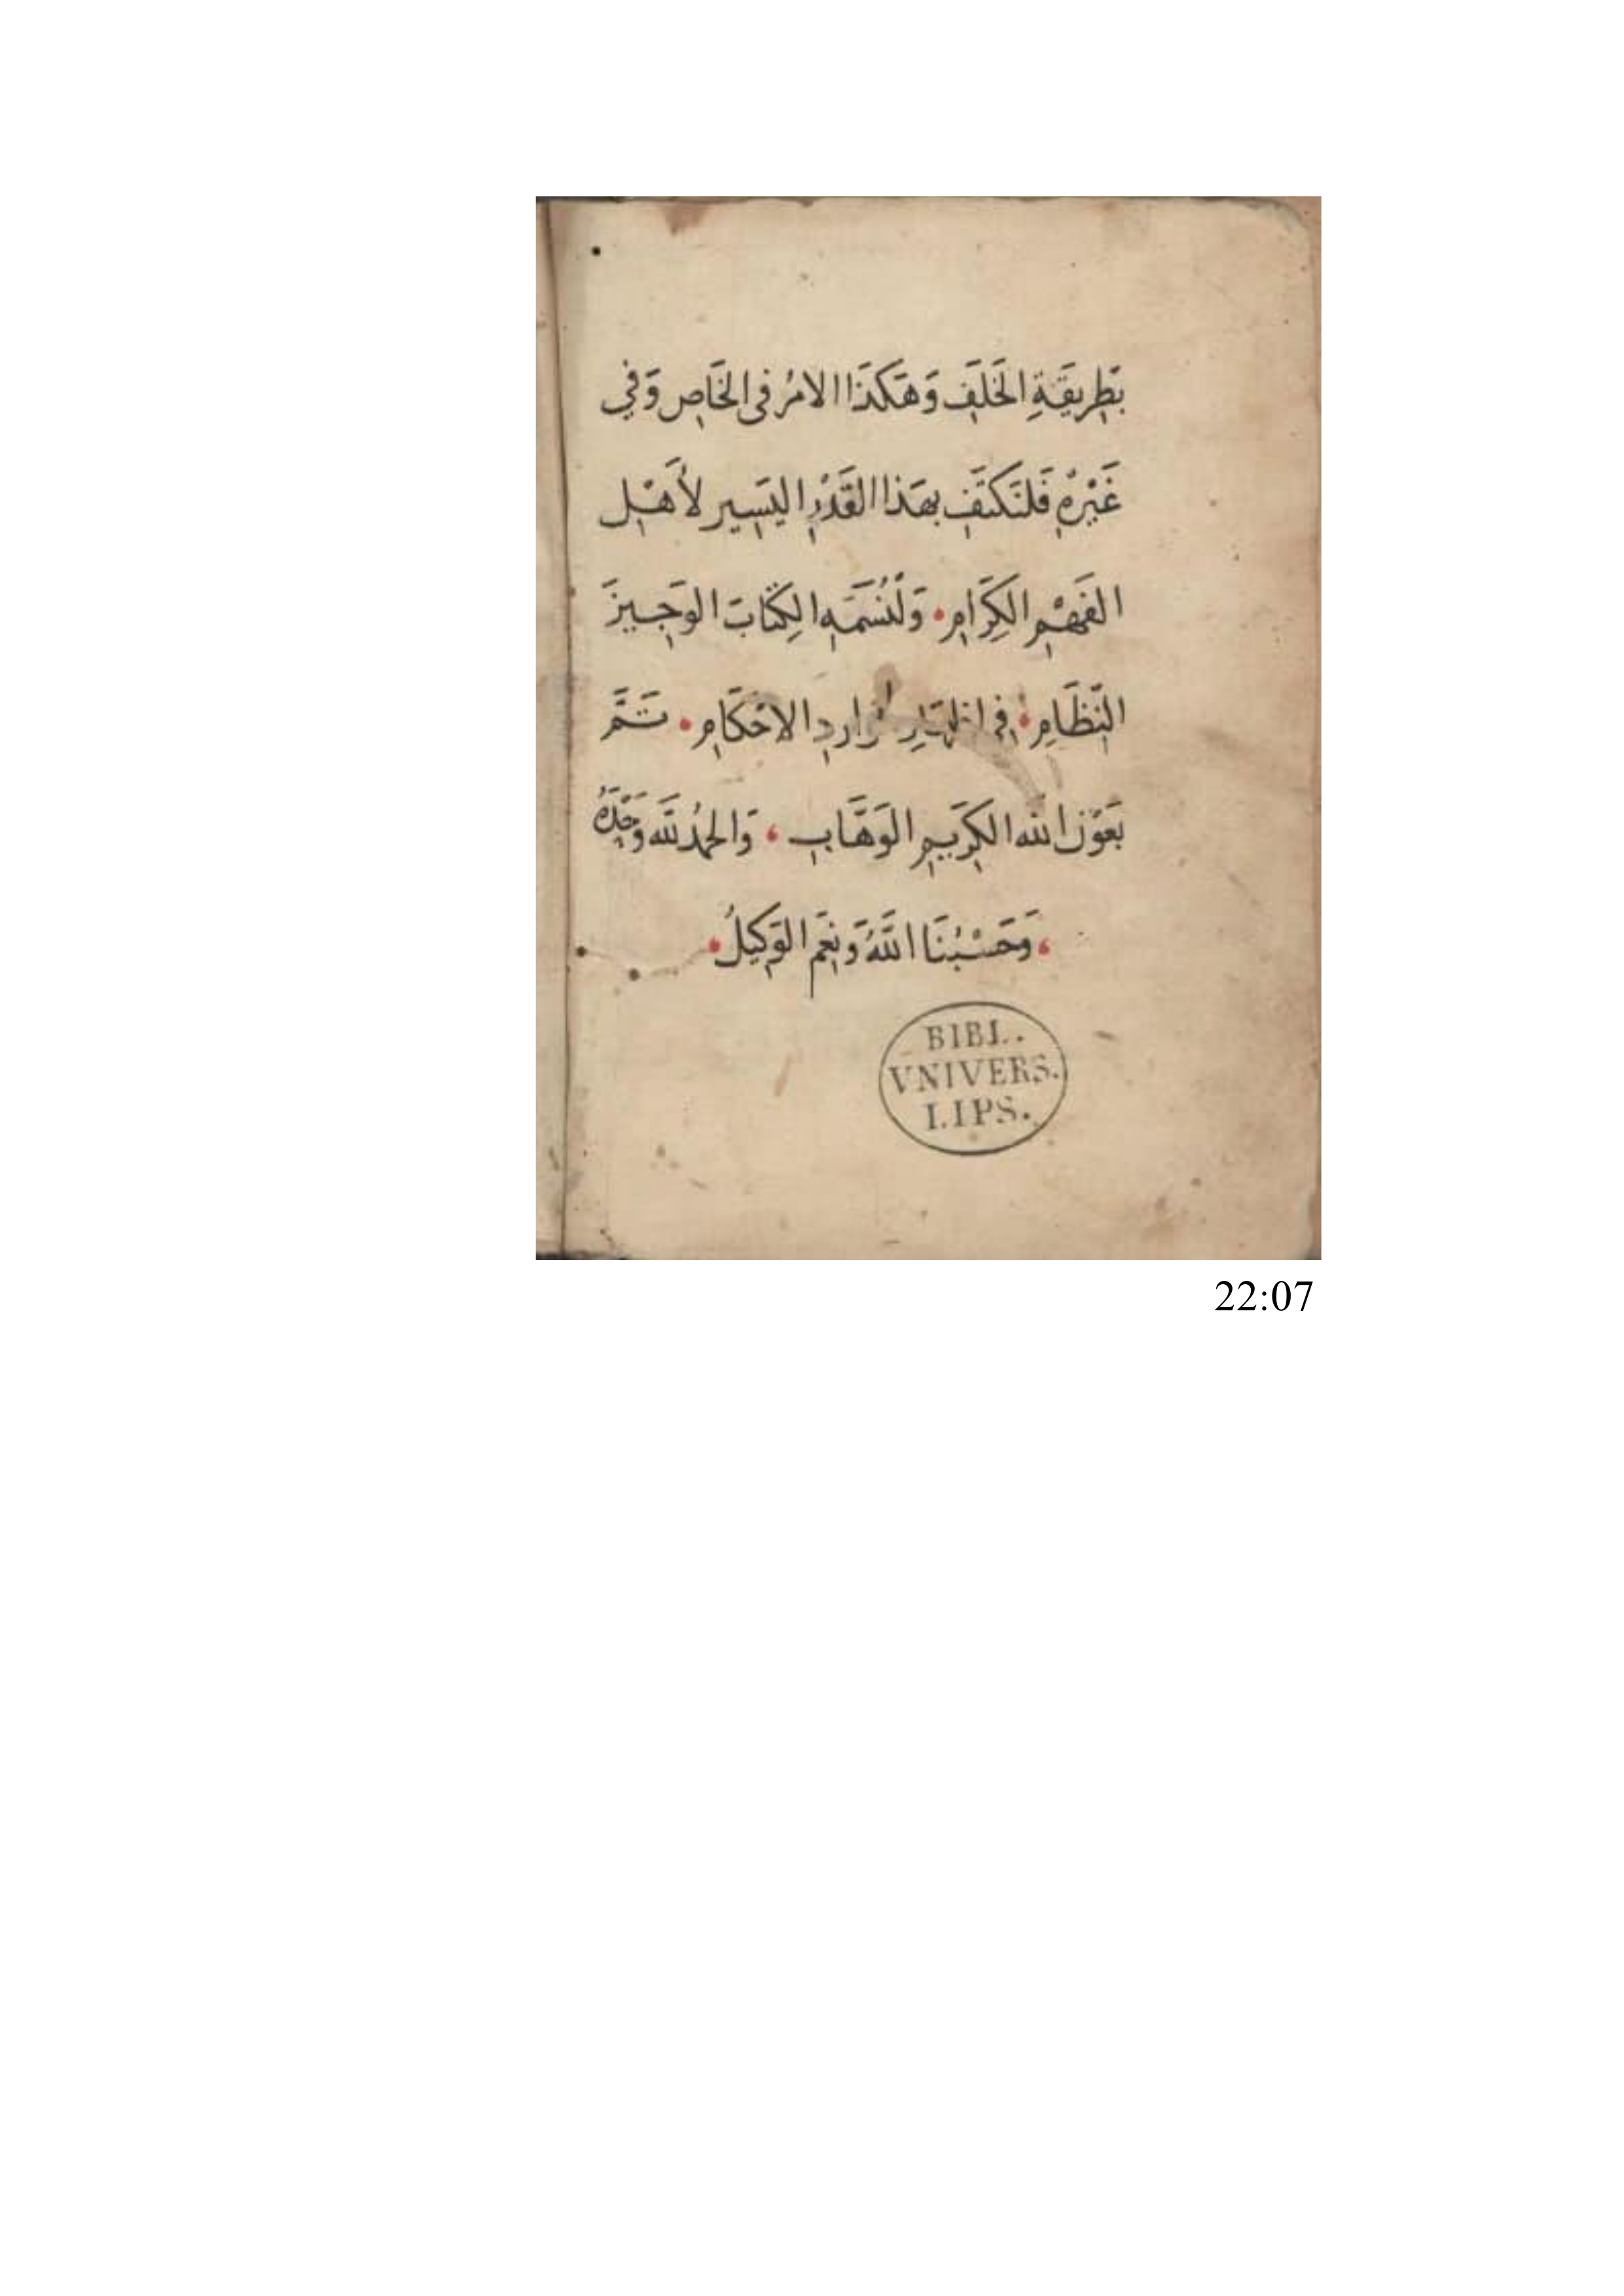 بَطِرِيقَةِ الخَلَفِ وَهَكَذَا الامْرُ فى الخَاصِ وَفِي
غَيْرِهِ فَلنَكتَفِ بهَذا القَدْرِ اليَسِيرِ لأَهْلِ
الفَهْمِ الكِرَامِ. وَلْنُسَمِّهِ الكِتَابَ الوَجِيزَ
النِّظَامِ. فِى اظهَارِ الاحْكَامِ. تَمَّ
بَعوْنِ الله الكَرِيمِ الوَهَّابِ، وَالحمْدُ للهِ وَحْدَهُ
، وَحَسْبُنَا اللَّهُ وَنِعْمَ الوَكِيلُ.
BIBL.
VNIVERS.
LIPS.
22:07